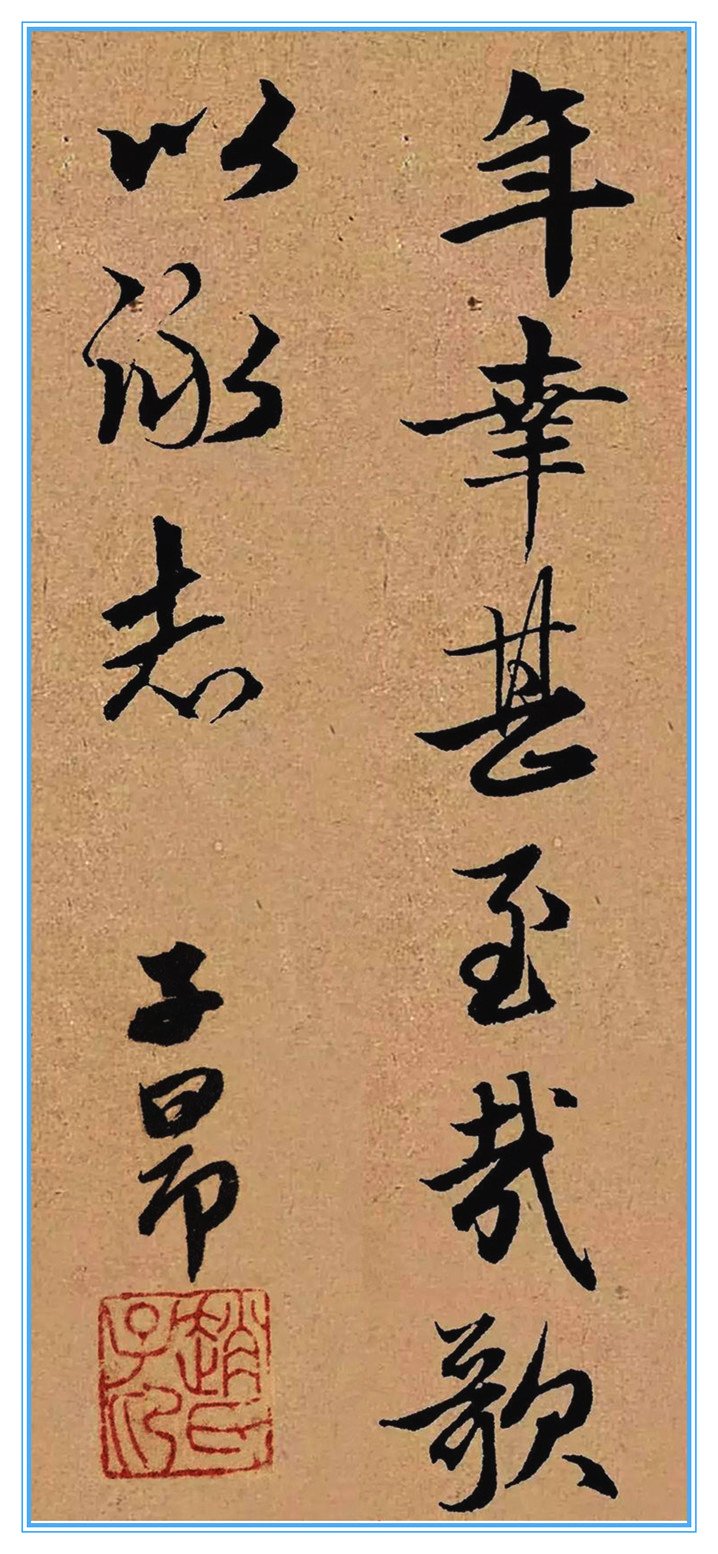 年幸甚至哉歌
以詠志 子昂
趙氏子昂